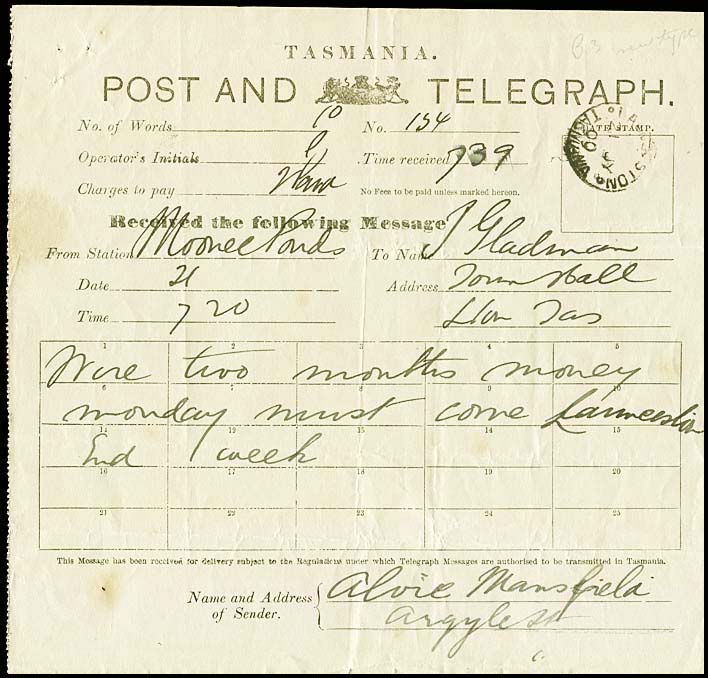 B3 new type
TASMANIA.
POST AND TELEGRAPH.
No. of Words 10 No. 154
DATE STAMP.
LAUNCESTON TASMANIA
Operator's Initials Time received 739
Charges to pay No Fee to be paid unless marked hereon.
Received the following Message
From Station Moonee Ponds To Name J Gladman
Date 21 Address Town Hall
Time 7 20 Lton Tas
1 2 3 4 5
Wire two months money
6 7 8 9 10
monday must come Launceston
11 12 13 14 15
End week
16 17 18 19 20
21 22 23 24 25
This Message has been received for delivery subject to the Regulations under which Telegraph Messages are authorised to be transmitted in Tasmania.
Name and Address of Sender. Alvie Mansfield
Argyle st